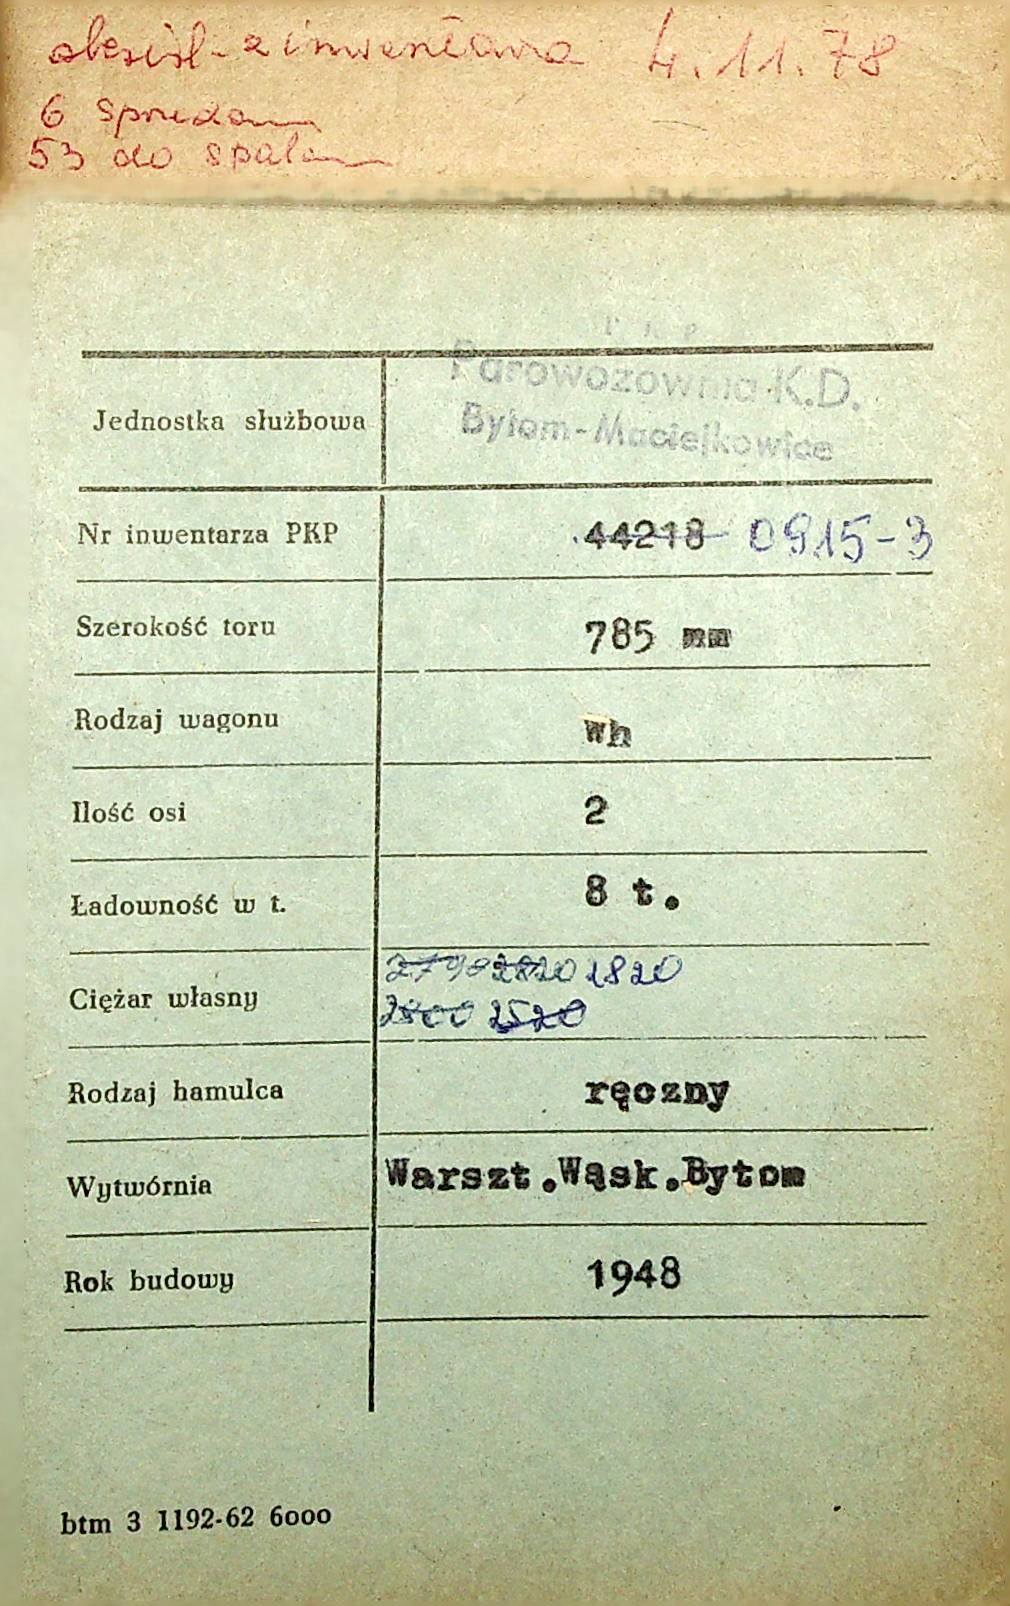 z inwentarza 4.11.78
6 sprzedam
53 do spalam
PKP
Parowozownia K.D.
Bytom-Maciejkowice
Jednostka służbowa
Nr inwentarza PKP 44218 0915-3
Szerokość toru 785 mm
Rodzaj wagonu Wh
Ilość osi 2
Ładowność w t. 8 t.
2790 2820 1820
Ciężar własny
2800 2520
Rodzaj hamulca ręczny
Wytwórnia Warszt.Wąsk.Bytom
Rok budowy 1948
btm 3 1192-62 6000